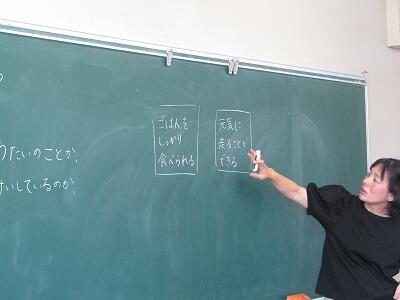 元気に
走ることが
できる
ごはんを
しっかり
食べられる
うたいのことか?
けいしているのか?